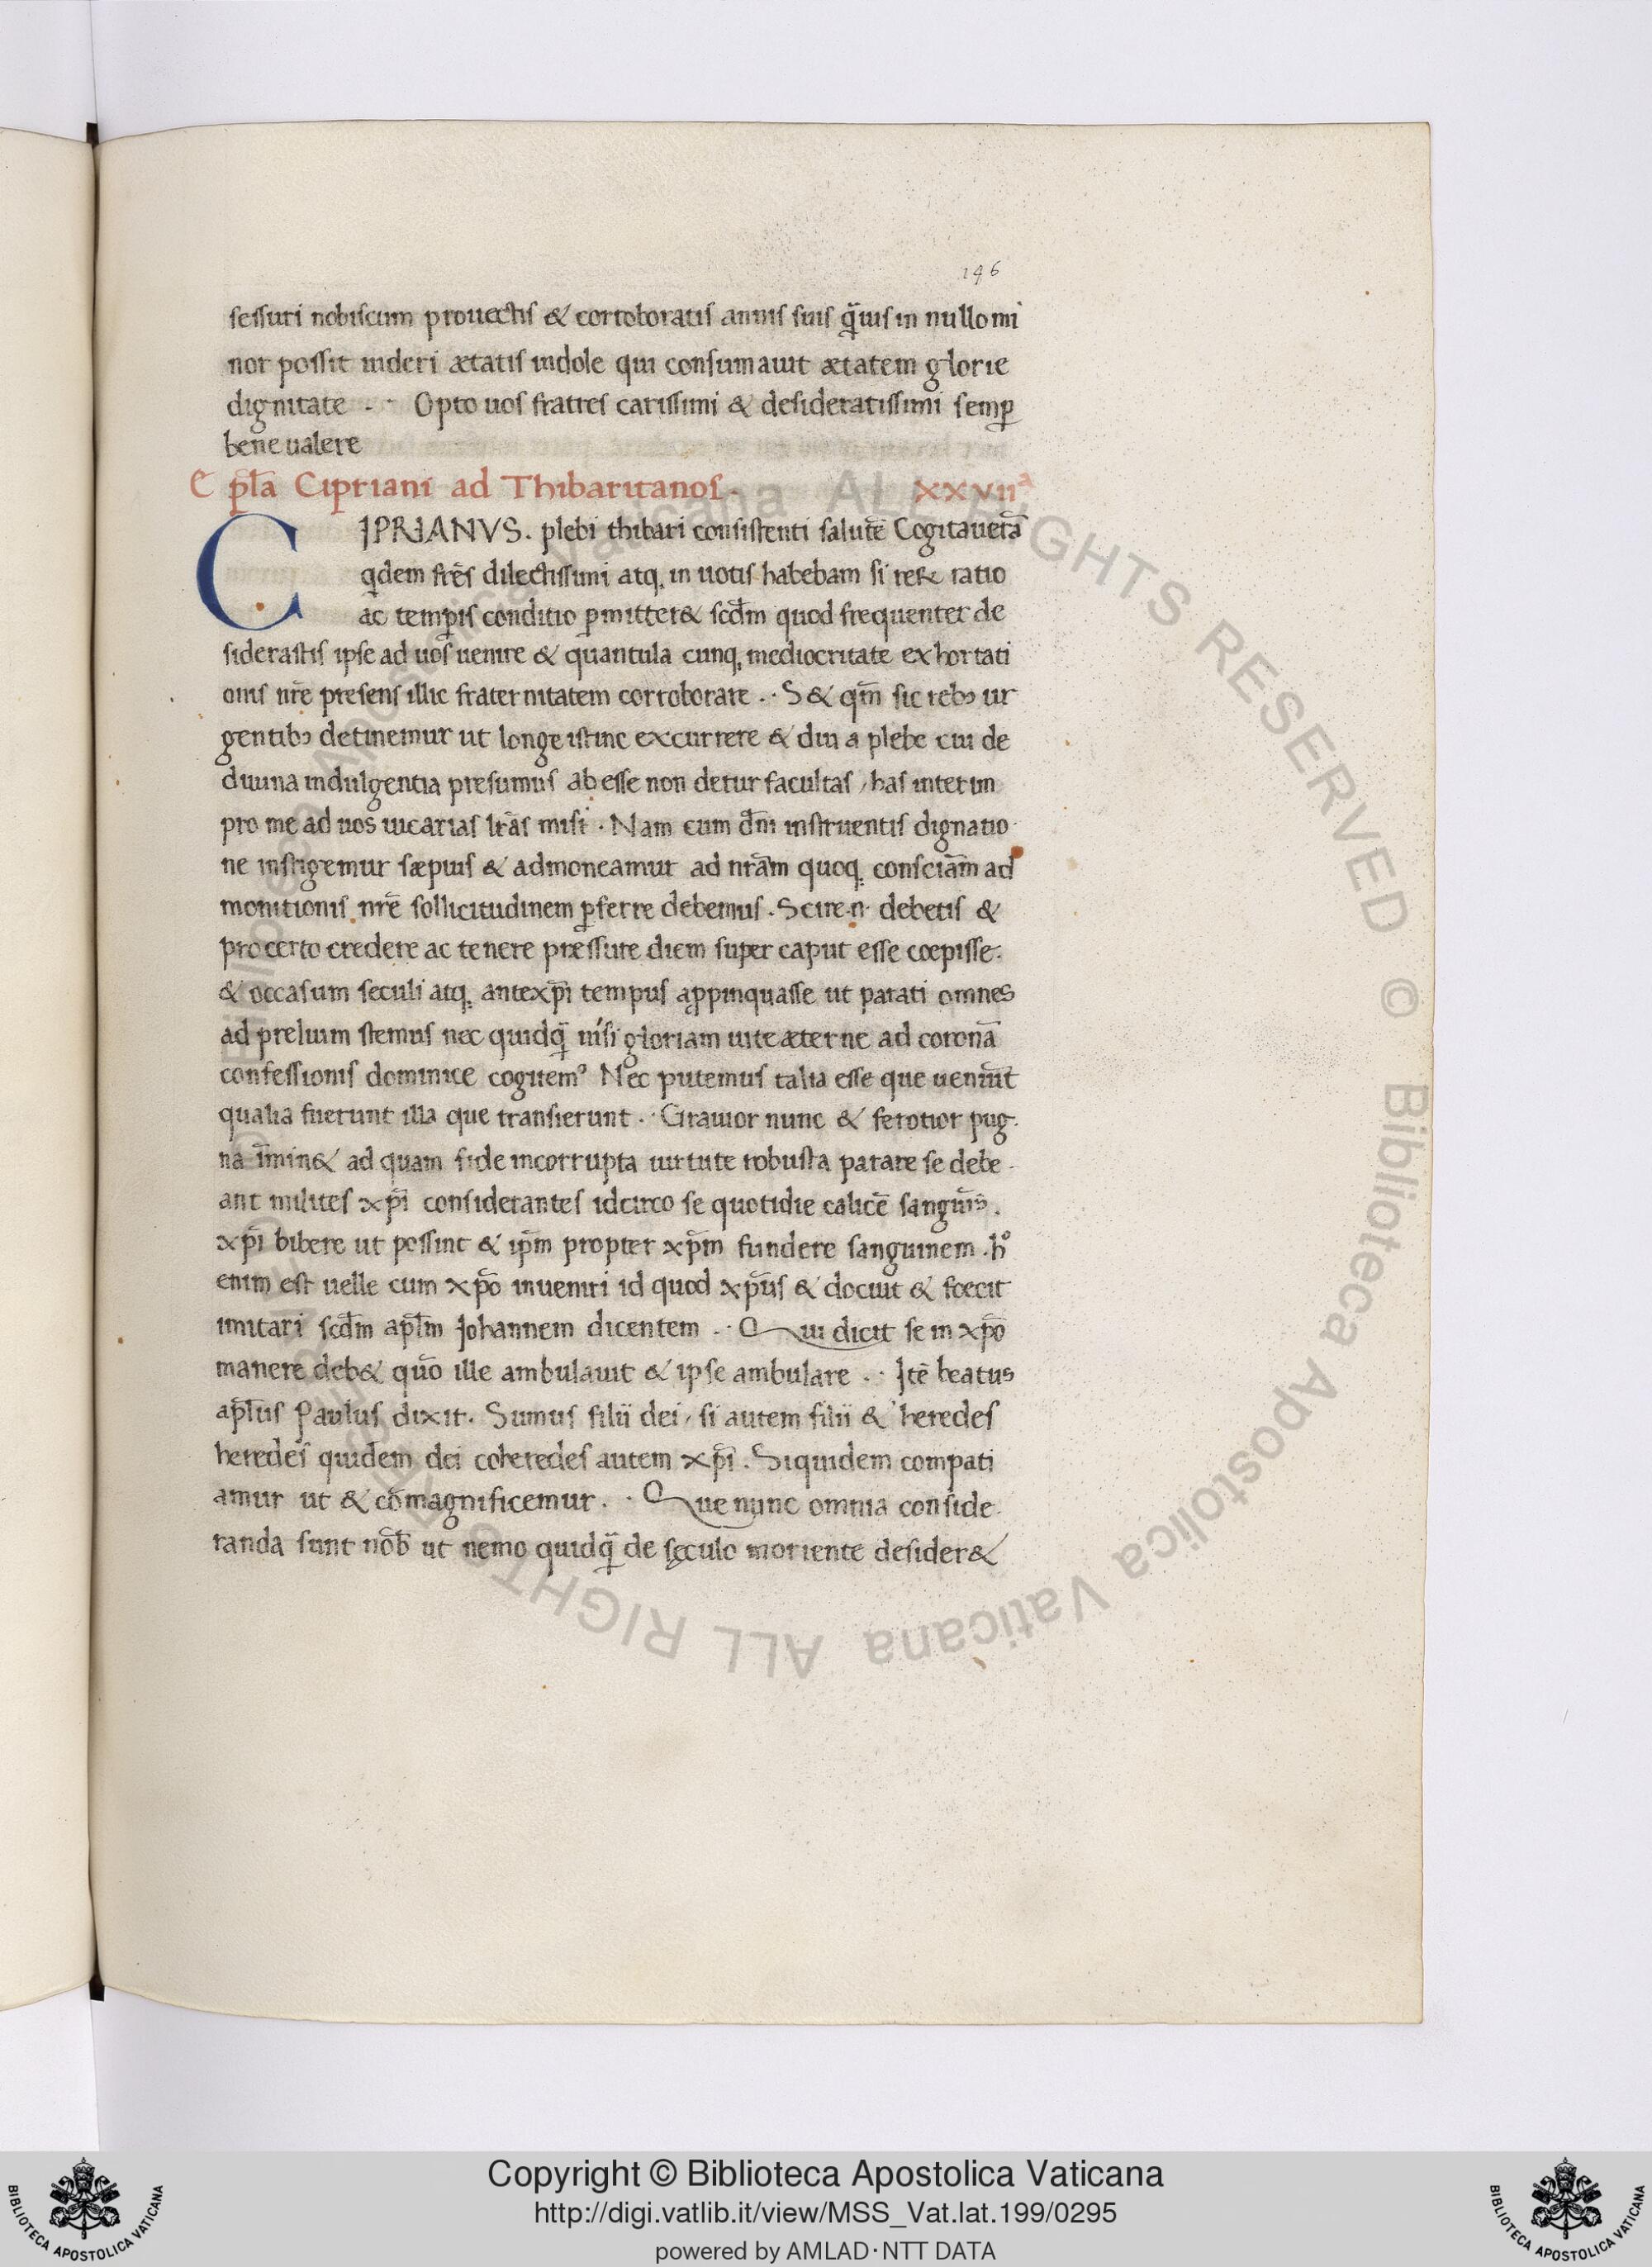 146
sessuri nobiscum prouectis & corroboratis annis suis q̃uis in nullo mi
nor possit uideri ætatis indole qui consumauit ætatem glorie
dignitate . · Opto uos fratres carissimi & desideratissimi semꝑ
bene ualere
Epl̃a Cipriani ad Thibaritanos . xxvii^a
CIPRIANVS . plebi thibari consistenti salutẽ Cogitauerã
qdem frẽs dilectissimi atq; in uotis habebam si rerꝝ ratio
ac temꝑis conditio ꝑmitter& scd̃m quod frequenter de
siderastis ipse ad uos uenire & quantula cunq; mediocritate exhortati
onis nr̃e presens illic fraternitatem corroborare . · S& qm̃ sic rebꝫ ur
gentibꝫ detinemur ut longe istinc excurrere & diu a plebe cui de
diuina indulgentia presumus abesse non detur facultas / has interim
pro me ad uos uicarias lr̃as misi · Nam cum dñi instruentis dignatio
ne instigemur sæpius & admoneamur ad nr̃am quoq; consciãm ad
monitionis nr̃e sollicitudinem ꝑferre debemus . Scire ·n· debetis &
pro certo credere ac tenere pressure diem super caput esse cœpisse .
& occasum seculi atq; antexp̃i tempus aꝓpinquasse ut parati omnes
ad prelium stemus nec quidq̃ nisi gloriam uite æterne ad coronã
confessionis dominice cogitemꝰ Nec putemus talia esse que ueniũt
qualia fuerunt illa que transierunt . · Grauior nunc & ferotior pug
na ĩmin& ad quam fide incorrupta uirtute robusta parare se debe
ant milites xp̃i considerantes idcirco se quotidie calicẽ sanguĩs .
xp̃i bibere ut possint & ip̃m propter xp̃m fundere sanguinem . h°
enim est uelle cum xp̃o inueniri id quod xp̃us & docuit & fœcit
imitari scd̃m apl̃m Johannem dicentem . · Qui dicit se in xp̃o
manere deb& quõ ille ambulauit & ipse ambulare . · Itẽ beatus
apl̃us Paulus dixit . Sumus filii dei / si autem filii & heredes
heredes quidem dei coheredes autem xp̃i . Siquidem compati
amur ut & cõmagnificemur . · Que nunc omnia conside
randa sunt nõb ut nemo quidq̃ de sęculo moriente desider&
Biblioteca Apostolica Vaticana ALL RIGHTS RESERVED ©
Copyright © Biblioteca Apostolica Vaticana
http://digi.vatlib.it/view/MSS_Vat.lat.199/0295
powered by AMLAD·NTT DATA
BIBLIOTECA APOSTOLICA VATICANA
BIBLIOTECA APOSTOLICA VATICANA